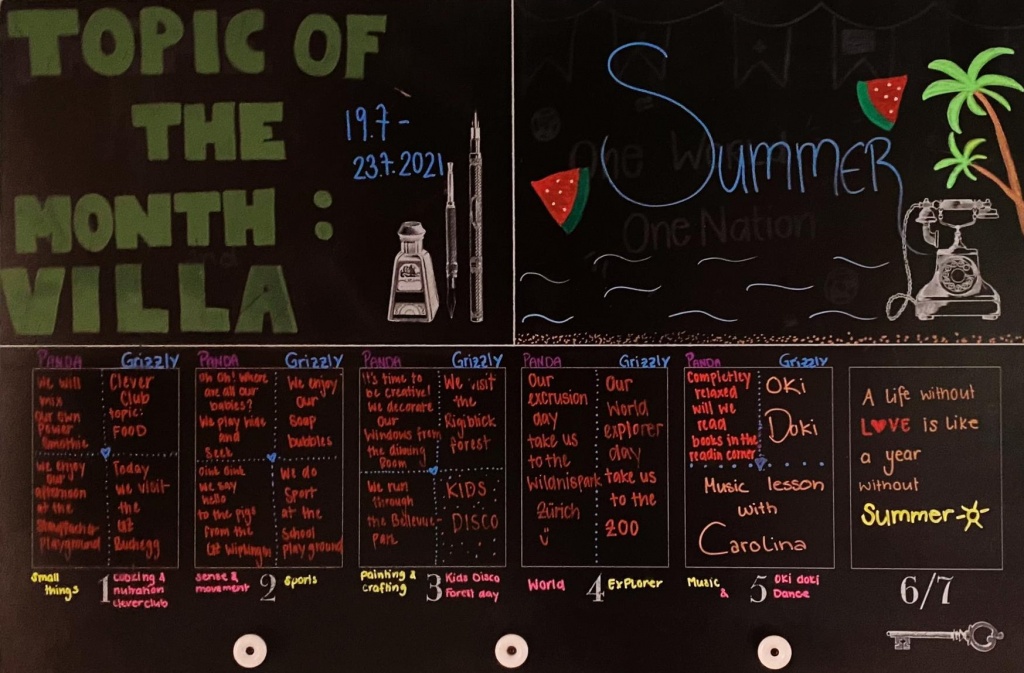 TOPIC OF
THE
MONTH :
VILLA
19.7 -
23.7.2021
SUMMER
One World
One Nation
PANDA
We will
mix
our own
Power
Smoothie
We enjoy
our
afternoon
at the
Stauffacher
Playground
Grizzly
Clever
Club
topic:
FOOD
Today
we visit
the
GZ
Buchegg
Small
things
1
cooking &
nutration
cleverclub
PANDA
Oh Oh! Where
are all our
babies?
We play hide
and
Seek
Oink oink
we say
hello
to the pigs
from the
GZ Wipkingen
Grizzly
We enjoy
our
Soap
bubbles
We do
Sport
at the
School
playground
Sense &
movement
2
Sports
PANDA
It's time to
be creative!
We decorate
our
Windows from
the dinning
Room
We run
through
the Bellevue-
park
Grizzly
We visit
the
Rigiblick
forest
KIDS
DISCO
Painting &
crafting
3
Kids Disco
Forest day
PANDA
Our
excrusion
day
take us
to the
Wildnispark
Zürich
Grizzly
Our
World
explorer
day
take us
to the
ZOO
World
4
ExPlorer
PANDA
Completley
relaxed
will we
read
books in the
readin corner
Grizzly
OKi
Doki
Music lesson
with
Carolina
Music
&
5
Oki doki
Dance
A life without
LOVE is like
a year
without
Summer
6/7